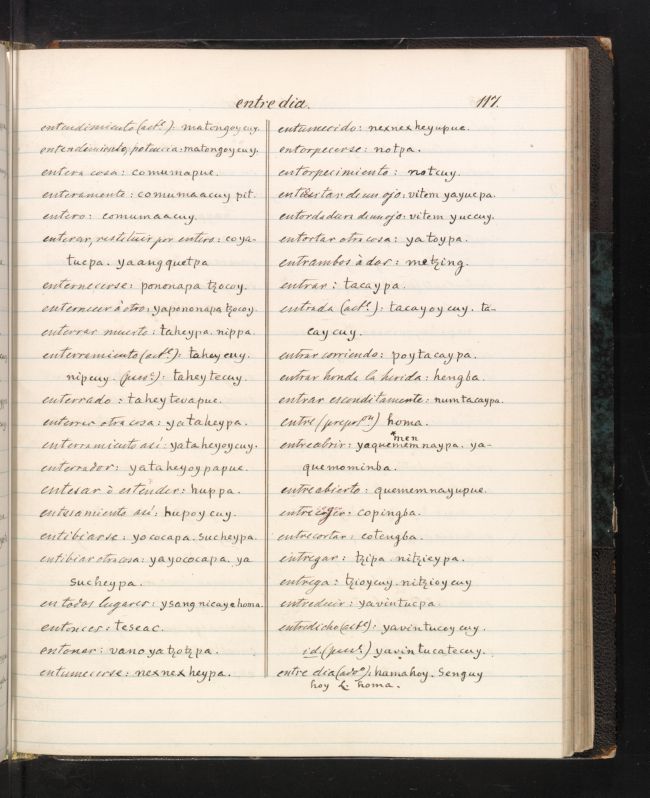 entre dia. 117.
entendimiento (act.º): matongoy cuy.
entendimiento, potencia: matongoy cuy.
entera cosa: comumapue.
enteramente: comumaacuy pit.
entero: comumaacuy.
enterar, restituir por entero: coya-
tucpa. yaangquetpa
enternecerse: pononapa tzocoy.
enternecer à otro: yapononapa tzocoy.
enterrar muerto: taheypa. nippa.
enterramiento (act.º): tahey cuy.
nipcuy. (pass.º): taheytecuy.
enterrado: taheytevapue.
enterrar otra cosa: yataheypa.
enterramiento asi: yataheyoycuy.
enterrador: yataheyoypapue.
entesar ò estender: huppa.
entesamiento asi: hupoycuy.
entibiarse: yococapa. sucheypa.
entibiar otra cosa: yayococapa. ya
sucheypa.
en todos lugares: ysangnicayehoma.
entonces: teseac.
entonar: vanoyatzotzpa.
entumecerse: nexnexheypa.
entumecido: nexnexheyupue.
entorpecerse: notpa.
entorpecimiento: notcuy.
entuertar de un ojo: vitem yayucpa.
entordadura de un ojo: vitem yuccuy.
entortar otra cosa: yatoypa.
entrambos à dos: metzing.
entrar: tacaypa.
entrada (act.º): tacayoycuy. ta-
caycuy.
entrar corriendo: poytacaypa.
entrar honda la herida: hengba.
entrar esconditamente: numtacaypa.
entre (prepos.on) homa.
men
entreabrir: yaquememnaypa. ya-
quemominba.
entreabierto: quememnayupue.
entrecoger: copingba.
entrecortar: cotengba.
entregar: tzipa. nitzieypa.
entrega: tzioycuy. nitzioycuy
entreduir: yavintucpa.
entredicho (act.º): yavintucoycuy.
id. (pass.º) yavintucatecuy.
entre dia (adv.º): hamahoy. Senguy
hoy L. homa.